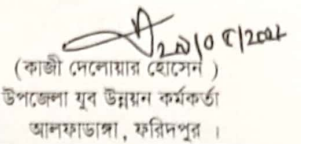 (কাজী দেলোয়ার হোসেন )
উপজেলা যুব উন্নয়ন কর্মকর্তা
আলফাডাঙ্গা, ফরিদপুর ।